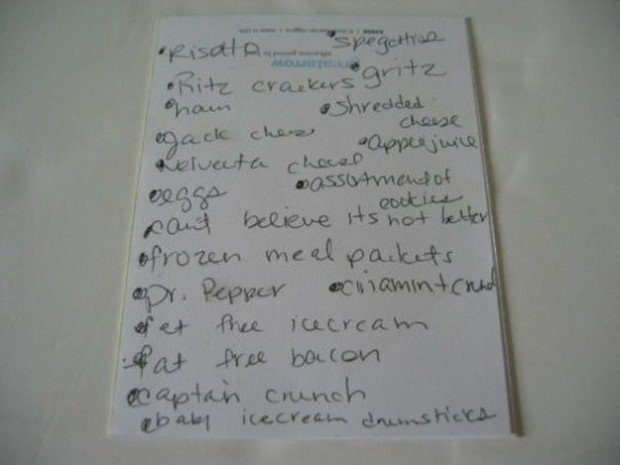 Risotto
Spegattios
Ritz crackers
gritz
ham
shredded
cheese
gack chese
apperjuice
velveeta cheese
eggs
assortment of
cookies
can't believe its not better
frozen meal packets
Dr. Pepper
cinamint crunch
fet free icecream
fat free bacon
captain crunch
baby icecream drumsticks